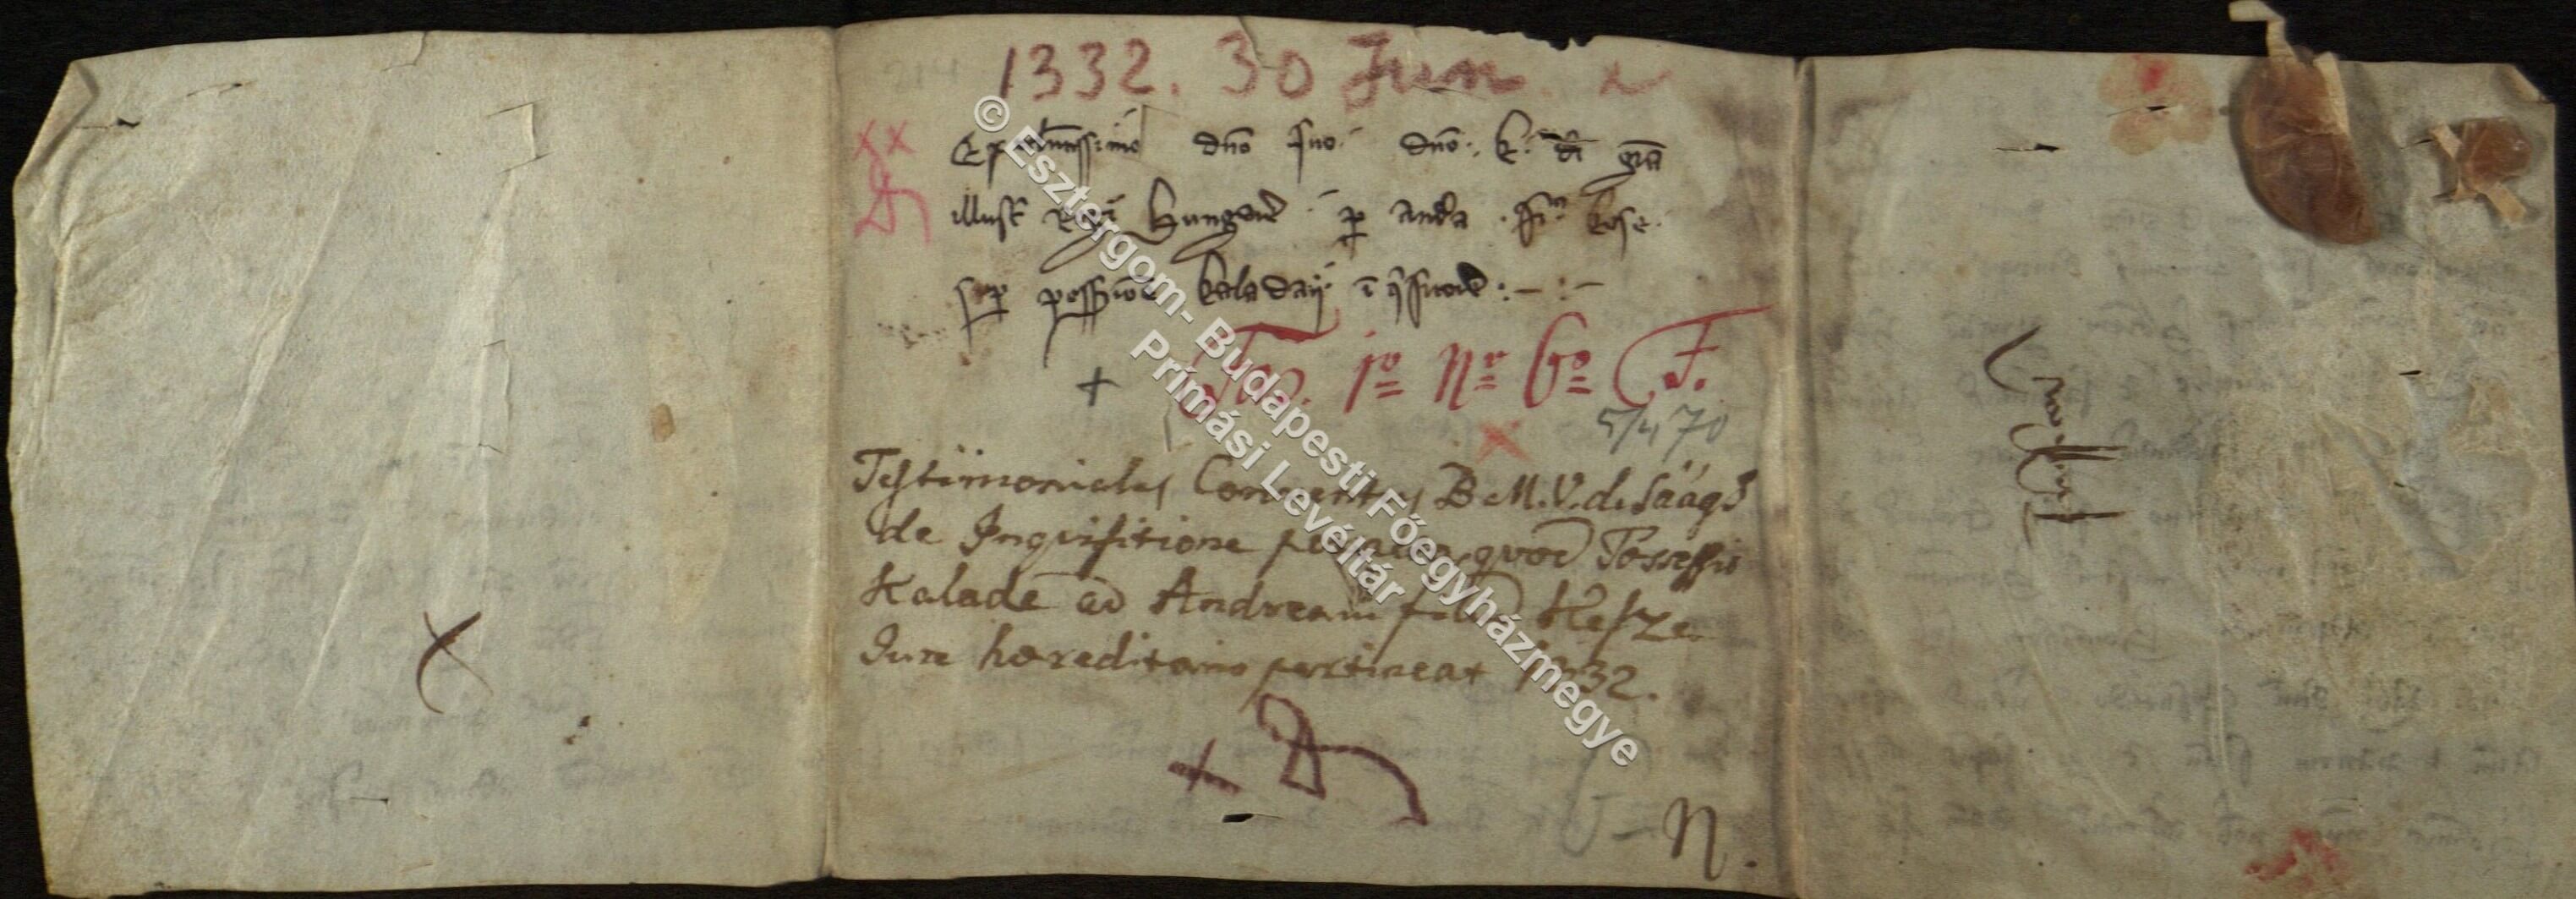 1332. 30 Jun
Exellentissimo dno suo dno k. di gra
illustri regi Hungarie p andra filio kese
sup possessione kaladay
Fas. 1º Nº 6º F.
5/4 70
Testimoniales Conventus B.M.V. de Saagh
de Inquisitione peracta, quod Possessio
Kalade ad Andream filium Kesze
Jure hæreditario pertineat 1332.
N.
© Esztergom- Budapesti Főegyházmegye
Prímási Levéltár